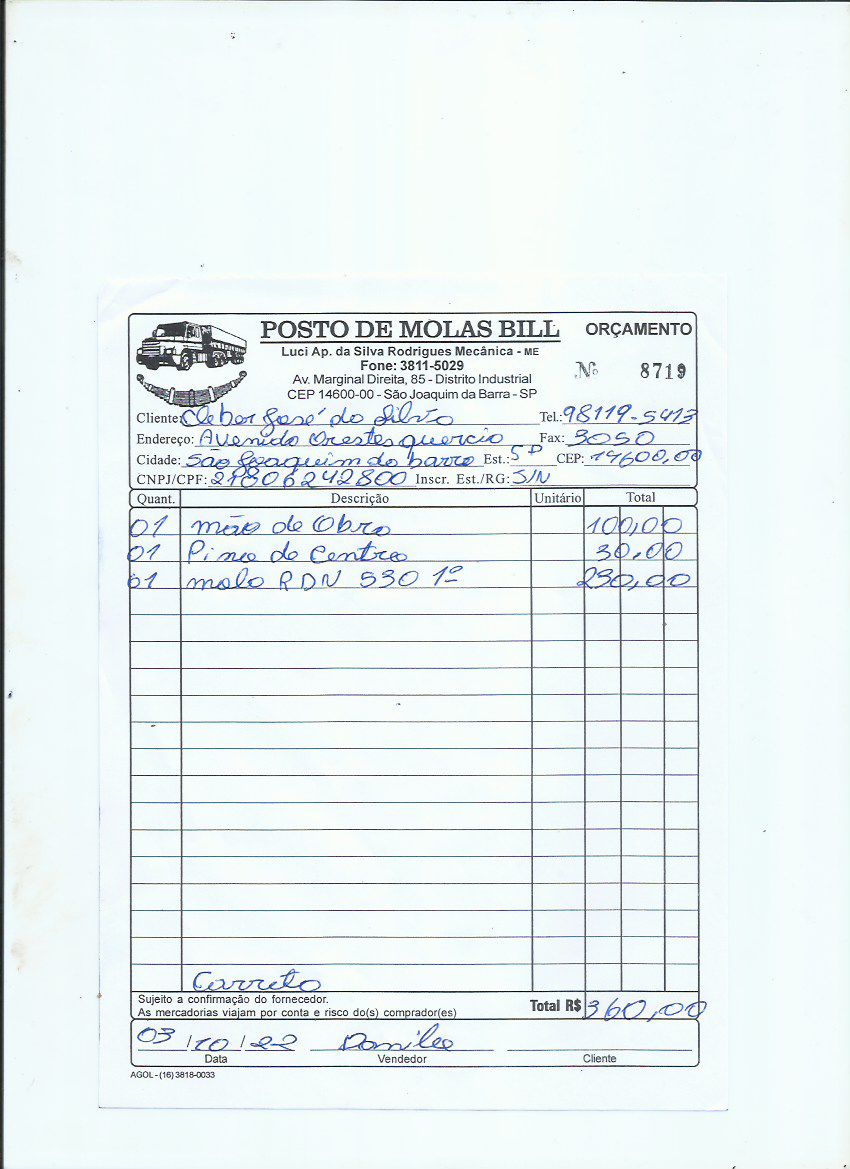 POSTO DE MOLAS BILL ORÇAMENTO
Luci Ap. da Silva Rodrigues Mecânica - ME
Fone: 3811-5029
Nº 8719
Av. Marginal Direita, 85 - Distrito Industrial
CEP 14600-00 - São Joaquim da Barra - SP
Cliente: Cleber José da Silva Tel.: 98119-5413
Endereço: Avenida Orestes quercia Fax: 3050
Cidade: São Joaquim da barra Est.: SP CEP: 14600,00
CNPJ/CPF: 21806242800 Inscr. Est./RG: S/N
Quant. Descrição Unitário Total
01 mão de Obra 100,00
01 Pino de Centro 30,00
01 mola RDN 530 1º 230,00
Carreto
Sujeito a confirmação do fornecedor.
As mercadorias viajam por conta e risco do(s) comprador(es)
Total R$ 360,00
03/10/22 Danilo
Data Vendedor Cliente
AGOL - (16) 3818-0033